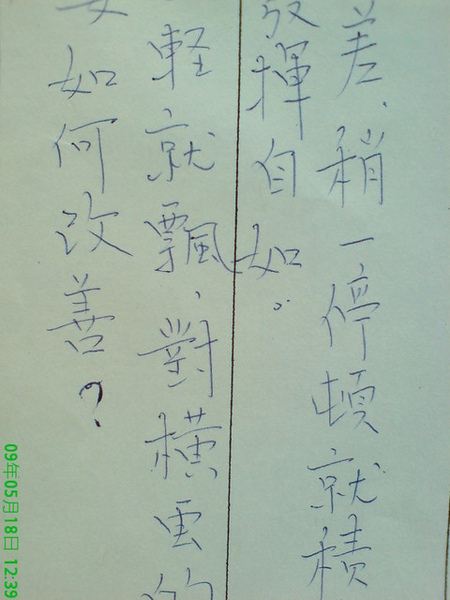 差、稍一停頓就積
發揮自如。
軽就飄、對橫的
如何改善?
09年05月18日 12:39